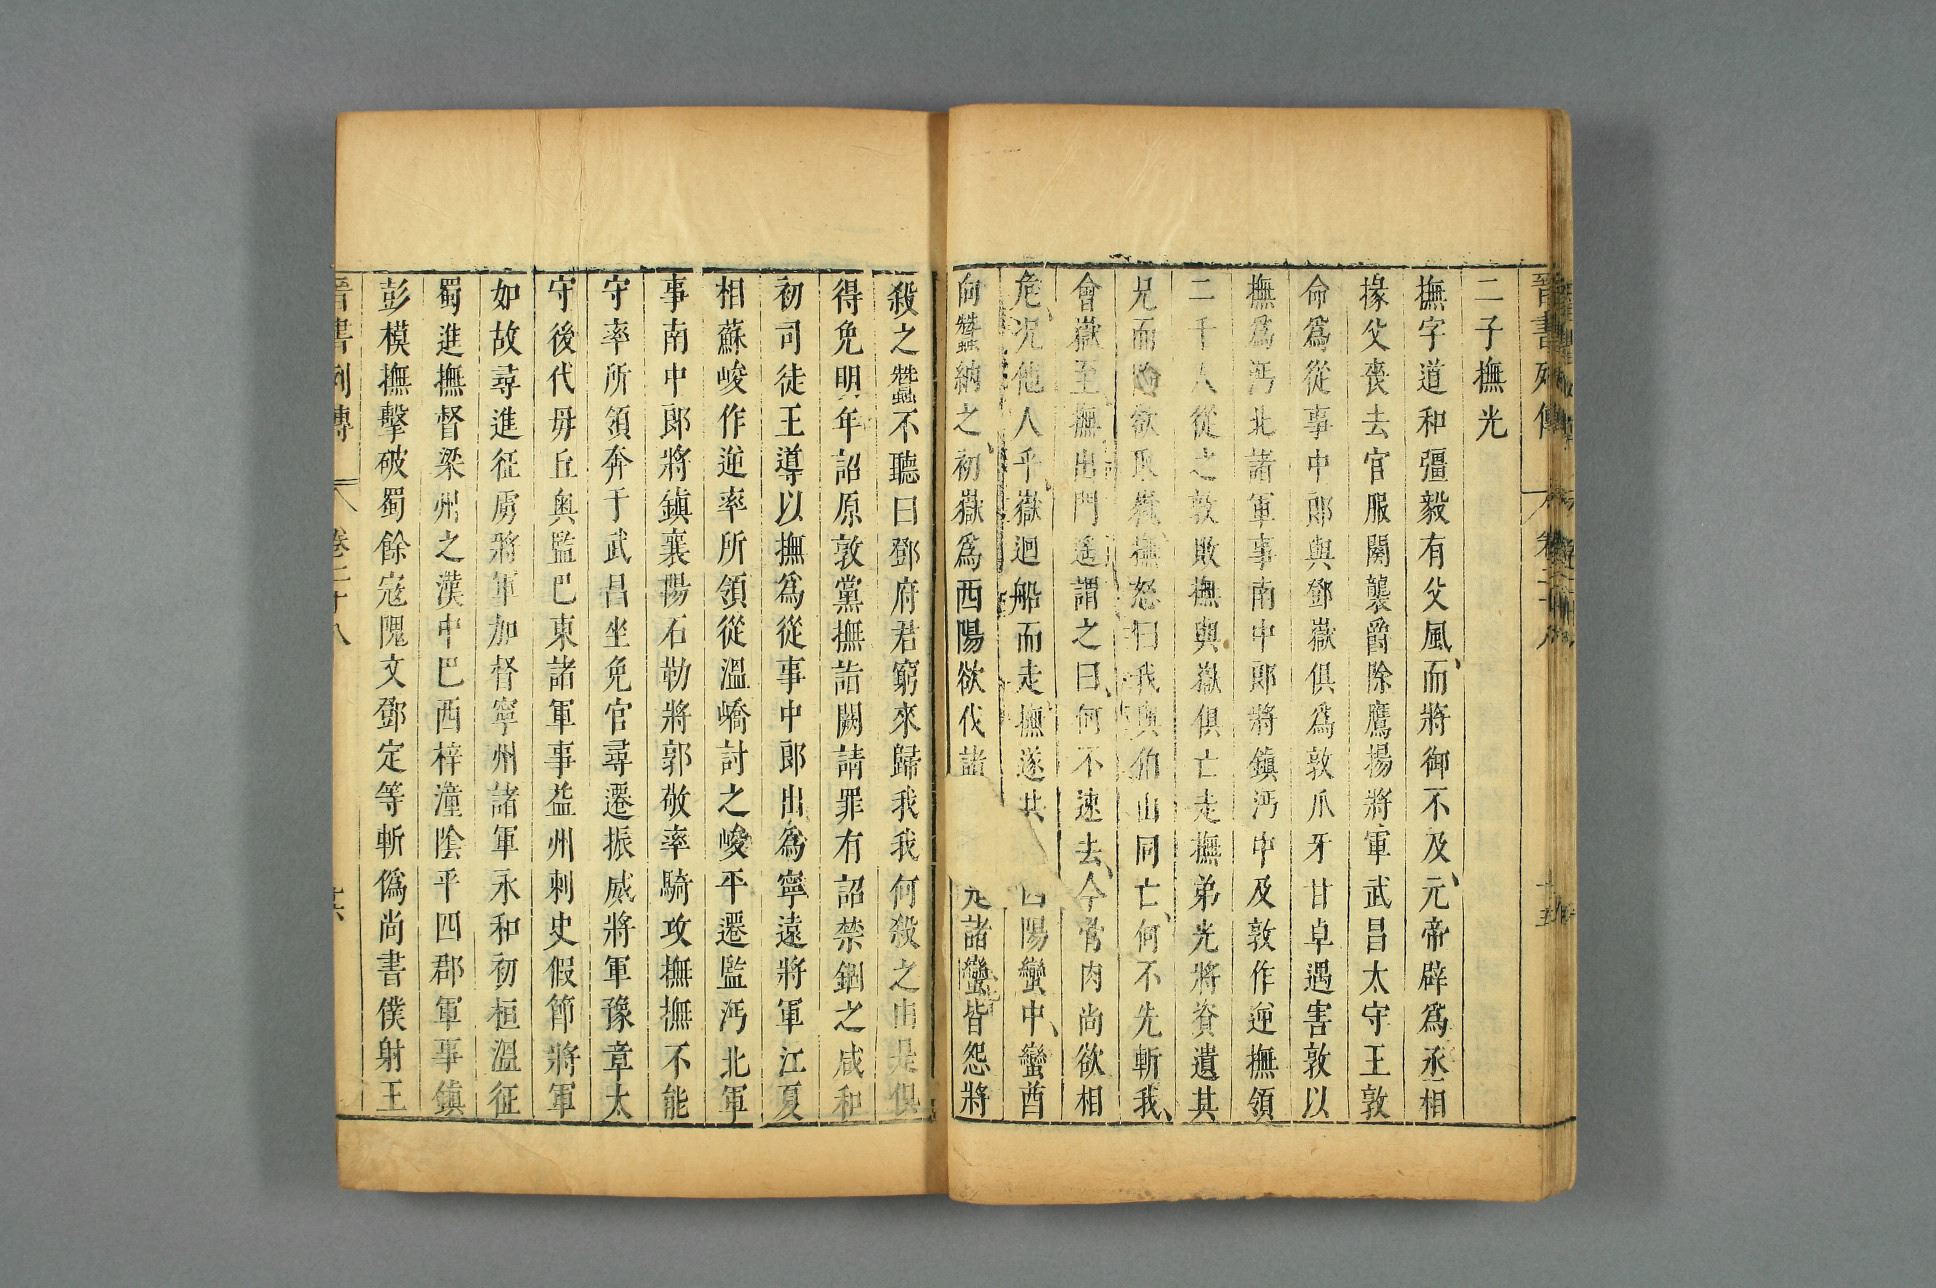 晉書列傳 卷二十八 十五
二子撫光
撫字道和彊毅有父風而將御不及元帝辟爲丞相
掾父喪去官服闋襲爵除鷹揚將軍武昌太守王敦
命爲從事中郎與鄧嶽俱爲敦爪牙甘卓遇害敦以
撫爲沔北諸軍事南中郎將鎮沔中及敦作逆撫領
二千人從之敦敗撫與嶽俱亡走撫弟光將資遺其
兄而陰欲取嶽撫怒曰我與伯山同亡何不先斬我
會嶽至撫出門遙謂之曰何不速去今骨肉尚欲相
危况他人乎嶽迴船而走撫遂共 西陽蠻中蠻酋
向蠶納之初嶽爲西陽欲伐諸 尤諸蠻皆怨將
殺之蠶不聽曰鄧府君窮來歸我我何殺之由是俱
得免明年詔原敦黨撫詣闕請罪有詔禁錮之咸和
初司徒王導以撫爲從事中郎出爲寧遠將軍江夏
相蘇峻作逆率所領從溫嶠討之峻平遷監沔北軍
事南中郎將鎮襄陽石勒將郭敬率騎攻撫撫不能
守率所領奔于武昌坐免官尋遷振威將軍豫章太
守後代毋丘奧監巴東諸軍事益州刺史假節將軍
如故尋進征虜將軍加督寧州諸軍永和初桓溫征
蜀進撫督梁州之漢中巴西梓潼陰平四郡軍事鎮
彭模撫擊破蜀餘寇隗文鄧定等斬僞尚書僕射王
晉書列傳 卷二十八 十六